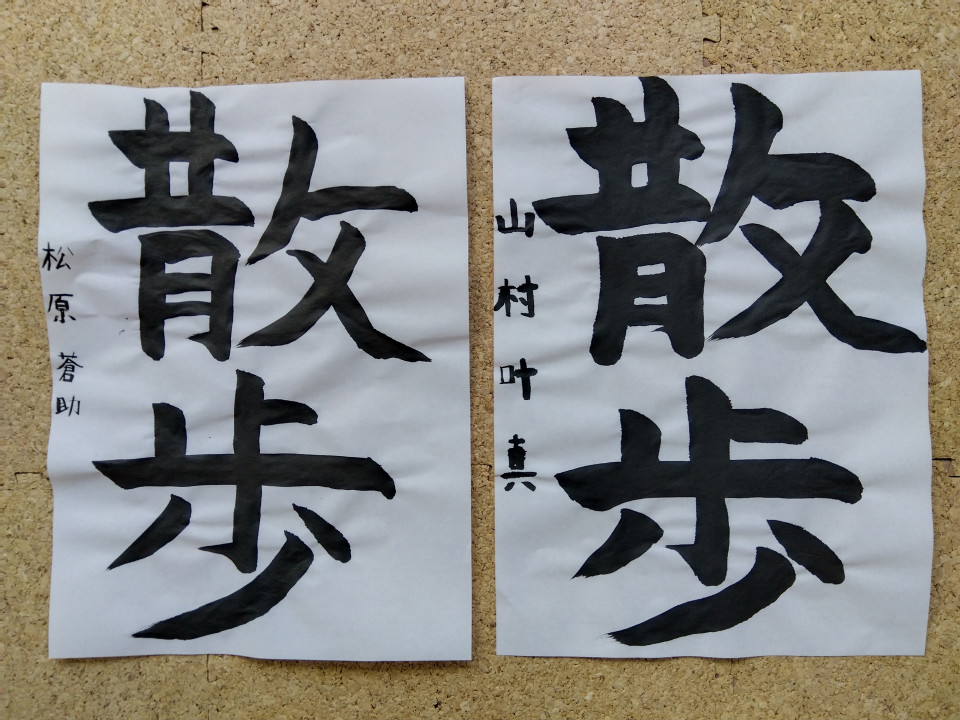 散歩
松原蒼助
散歩
山村叶真